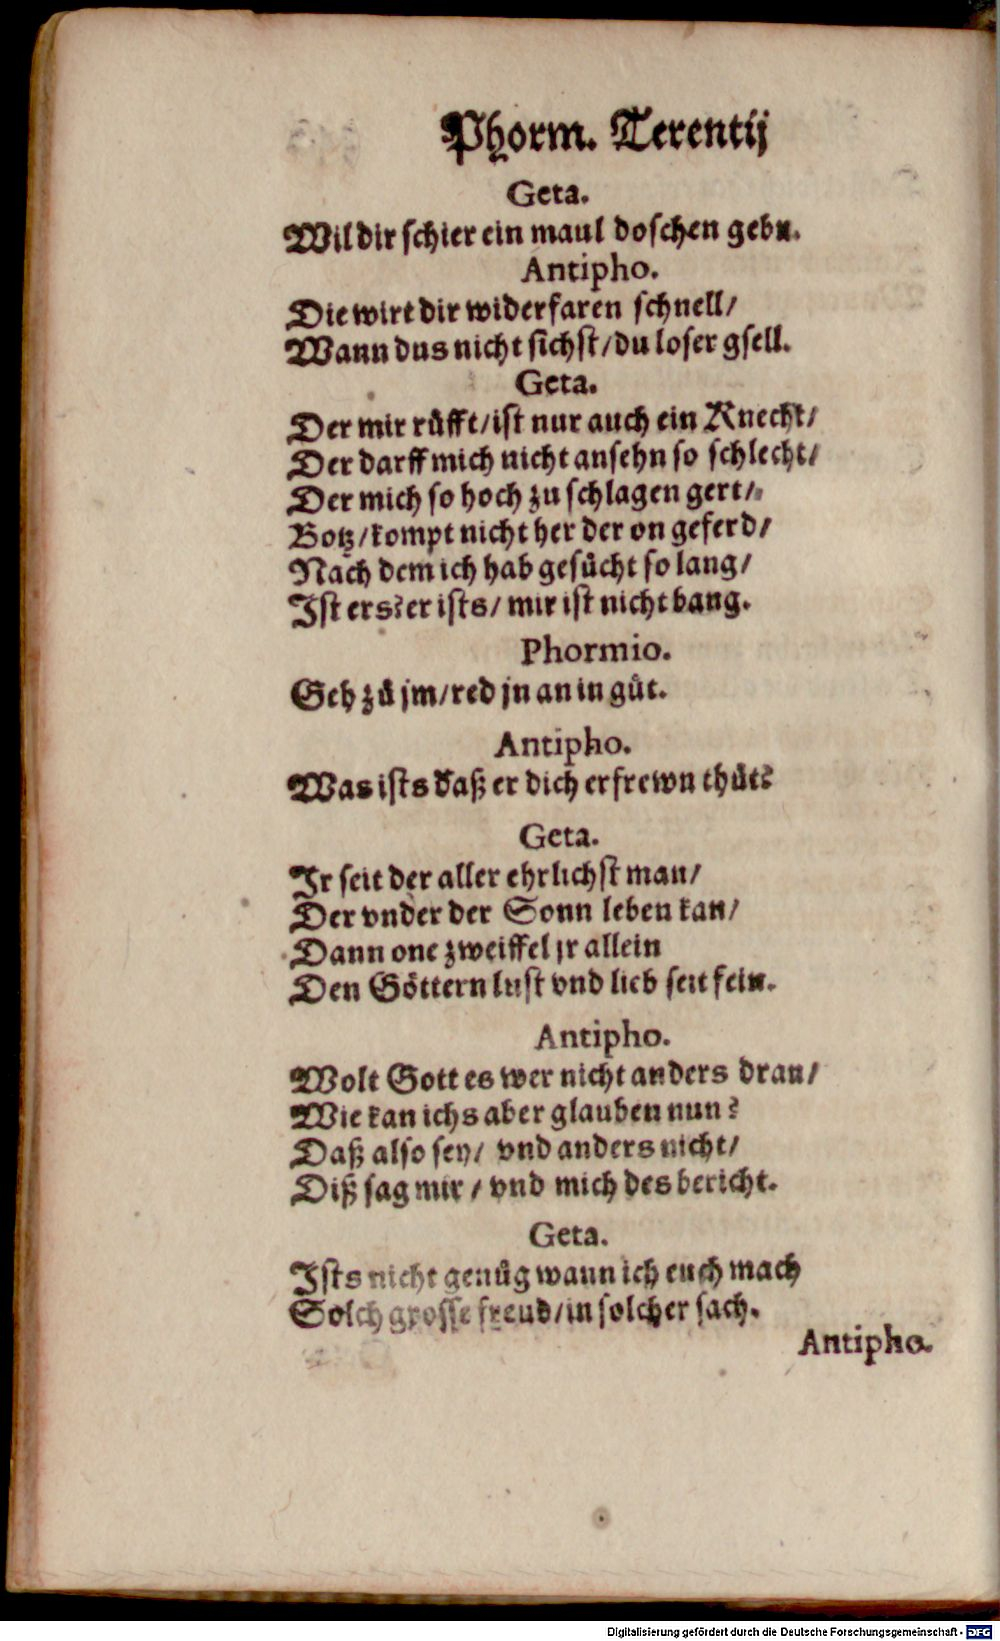 Phorm. Terentij
Geta.
Wil dir schier ein maul doschen gebn.
Antipho.
Die wirt dir widerfaren schnell/
Wann dus nicht sichst/du loser gsell.
Geta.
Der mir růfft/ist nur auch ein Knecht/
Der darff mich nicht ansehn so schlecht/
Der mich so hoch zu schlagen gert/
Botz/kompt nicht her der on geferd/
Nach dem ich hab gesůcht so lang/
Ist ers?er ists/ mir ist nicht bang.
Phormio.
Geh zů jm/red jn an in gůt.
Antipho.
Was ists daß er dich erfrewn thůt?
Geta.
Ir seit der aller ehrlichst man/
Der vnder der Sonn leben kan/
Dann one zweiffel jr allein
Den Göttern lust vnd lieb seit fein.
Antipho.
Wolt Gott es wer nicht anders dran/
Wie kan ichs aber glauben nun?
Daß also sey/ vnd anders nicht/
Diß sag mir/ vnd mich des bericht.
Geta.
Ists nicht genůg wann ich euch mach
Solch grosse freud/in solcher sach.
Antipho.
Digitalisierung gefördert durch die Deutsche Forschungsgemeinschaft - DFG